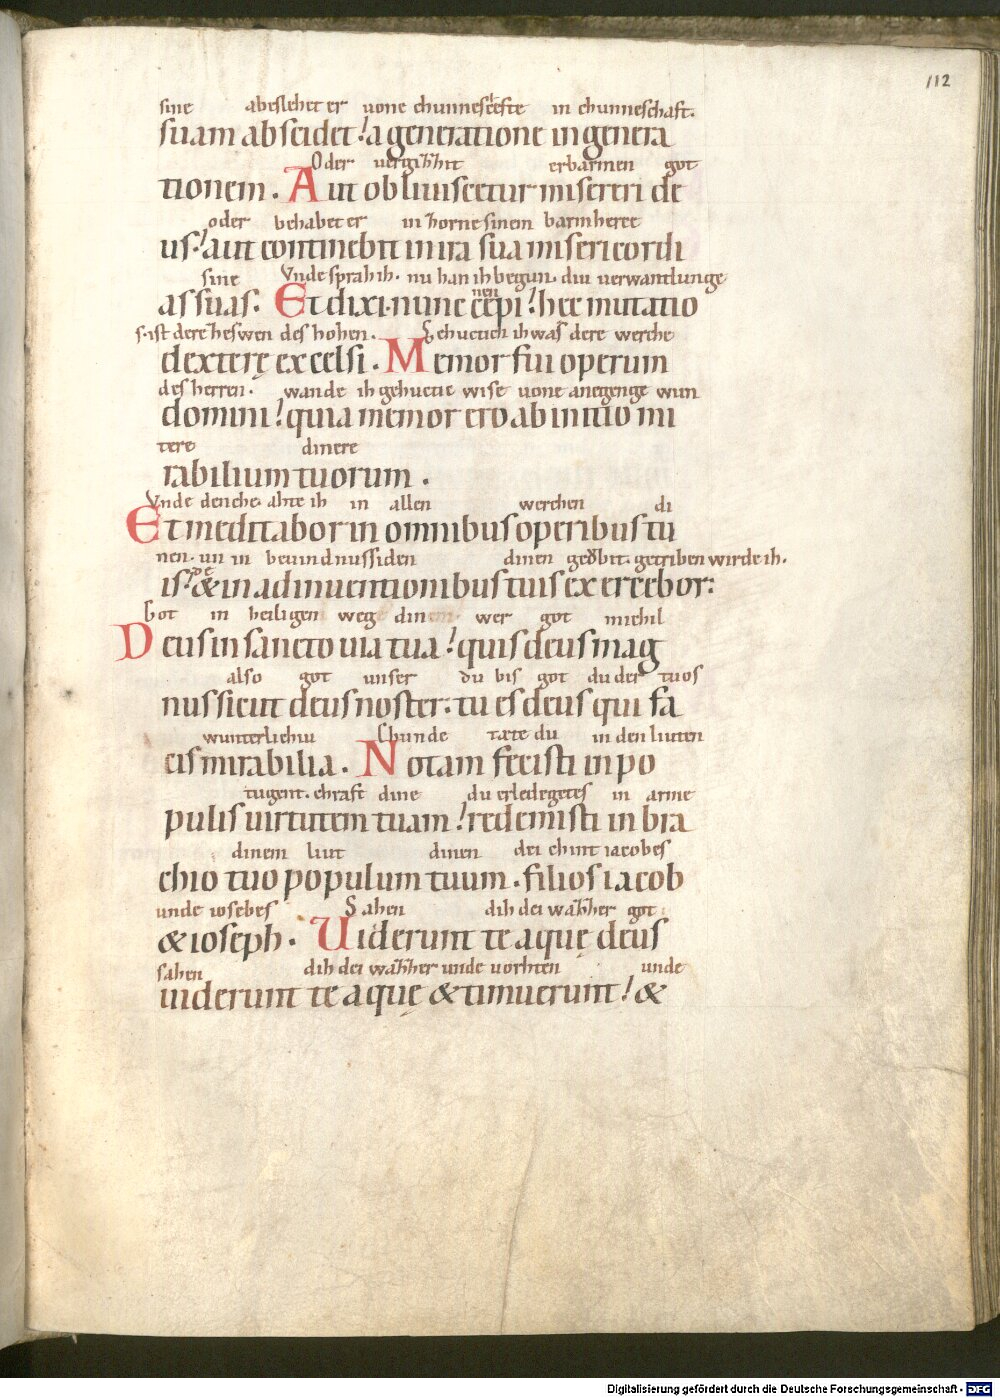 112
sine abeslehet er uone chunnescefte in chunneschaft.
suam abscidet! a generatione in genera
Oder uergizzit erbarmen got
tionem. Aut obliuiscetur misereri de
oder behabet er in zorne sinem barmherce
us! aut continebit in ira sua misericordi
sine Vnde sprah ih. nu han ih begun nen. diu uerwantlunge
as suas. Et dixi. nunc cępi! hec mutatio
s. ist dere zeswen des hohen. Gehuctich ih was dere werche
dexterę excelsi. Memor fui operum
des herren. wande ih gehuctic wise uone anegenge wun
domini! quia memor ero ab initio mi
tere dinere
rabilium tuorum.
Vnde denche. ahte ih in allen werchen di
Et meditabor in omnibus operibus tu
nen. un in beuindnussiden dinen geůbit. getriben wirde ih.
is! & in adinuentionibus tuis exercebor:
Got in heiligen weg dinem wer got michil
Deus in sancto uia tua! quis deus mag
also got unser du bis got du der tuos
nus sicut deus noster: tu es deus qui fa
wunterlichiu Chunde tæte du in den liuten
cis mirabilia. Notam fecisti in po
tugent. chraft dine du erledegetes in arme
pulis uirtutem tuam! redemisti in bra
dinem liut dinen dei chint iacobes
chio tuo populum tuum. filios iacob
unde iosebes Sahen dih dei wazzer got
& ioseph. Uiderunt te aquę deus
sahen dih dei wazzer unde uorhten unde
uiderunt te aquę & timuerunt! &
Digitalisierung gefördert durch die Deutsche Forschungsgemeinschaft - DFG